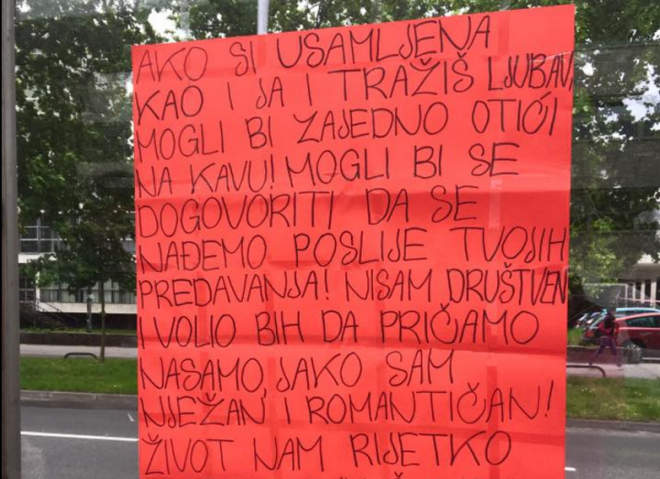 AKO SI USAMLJENA
KAO I JA I TRAŽIŠ LJUBAV,
MOGLI BI ZAJEDNO OTIĆI
NA KAVU! MOGLI BI SE
DOGOVORITI DA SE
NAĐEMO POSLIJE TVOJIH
PREDAVANJA! NISAM DRUŠTVEN
I VOLIO BIH DA PRIČAMO
NASAMO, JAKO SAM
NJEŽAN I ROMANTIČAN!
ŽIVOT NAM RIJETKO